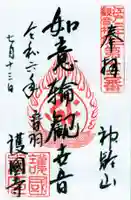 奉拝
神齢山
如意輪観世音
音羽
護国寺
令和六年
七月十三日